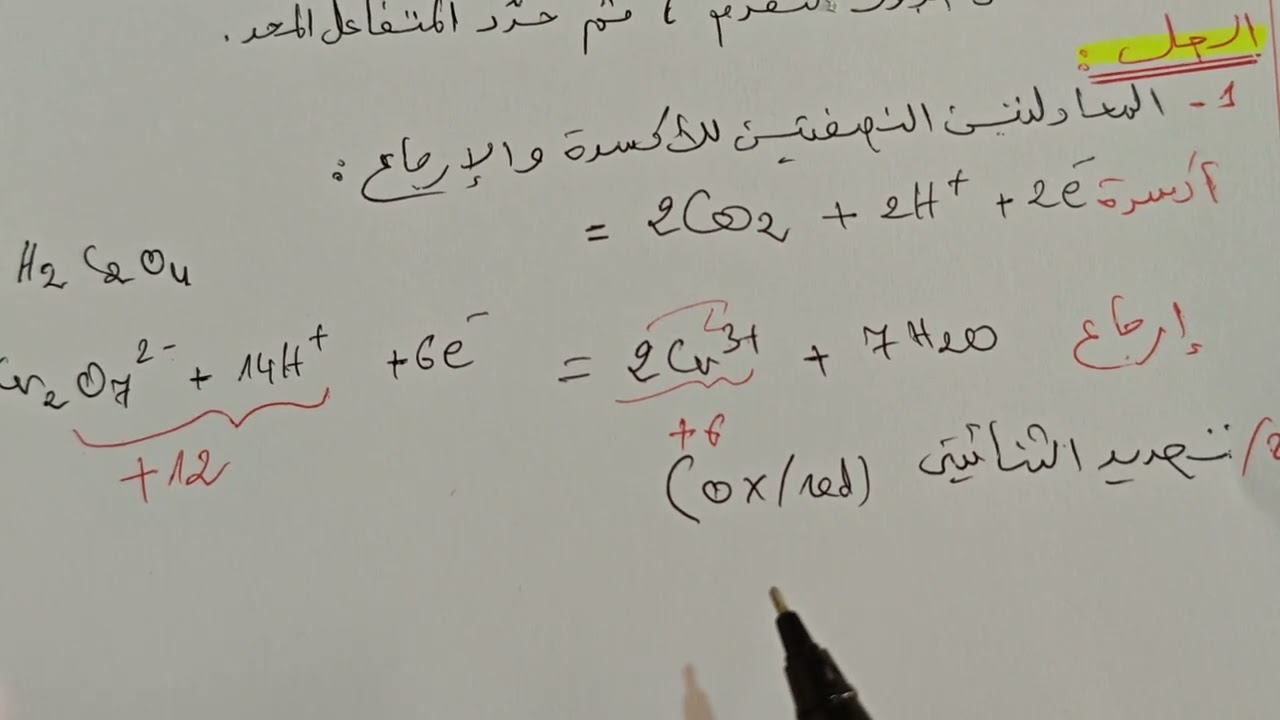 التقدم ) ثم حدّد المتفاعل المحد.
الحل :
1- المعادلتين النصفيتين للأكسدة والإرجاع :
H2C2O4 = 2CO2 + 2H+ + 2e- أكسدة
Cr2O7 2- + 14H+ + 6e- = 2Cr3+ + 7H2O إرجاع
+12 +6
2/ تحديد الثنائيتي (ox/red)